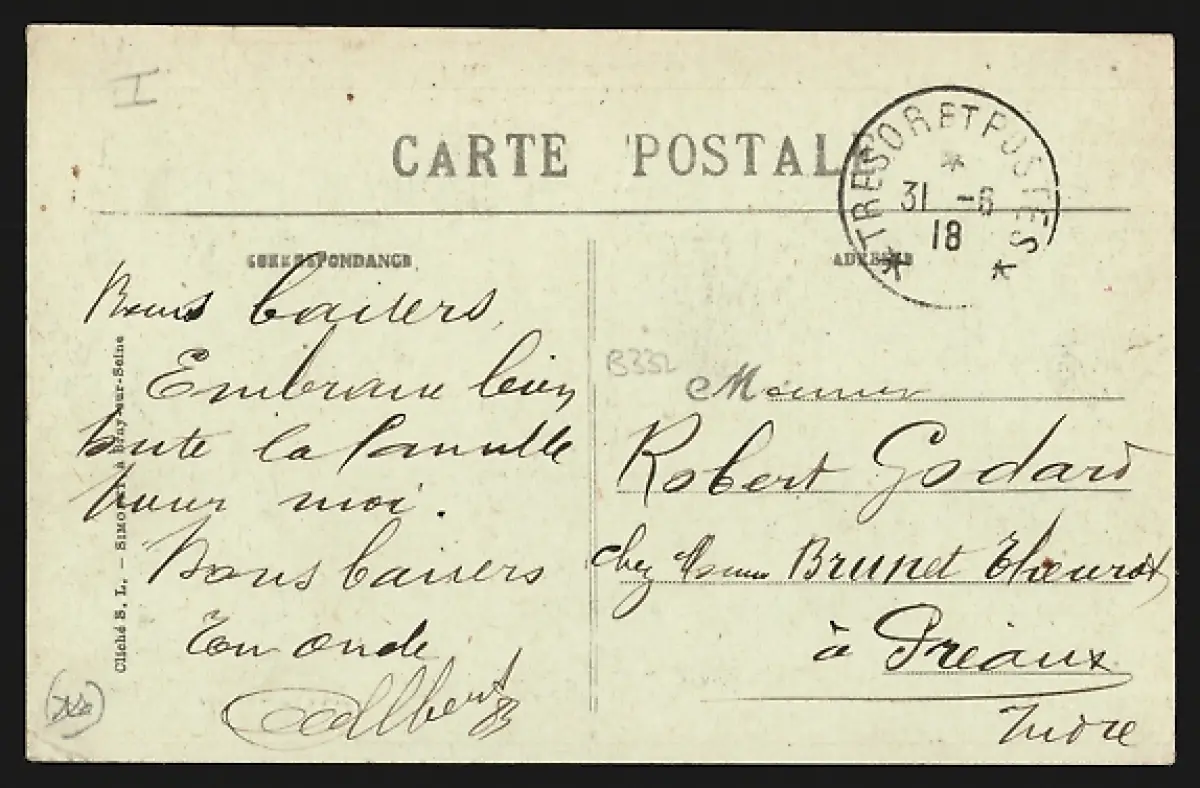 I
CARTE POSTALE
TRESOR ET POSTES
31 -6
18
CORRESPONDANCE
ADRESSE
Bons baisers,
Embrasse bien
toute la famille
pour moi.
Bons baisers
Ton oncle
Albert
B332
Monsieur
Robert Godard
chez Brunet
à Préaux
Indre
Cliché S. L. — à Bray-sur-Seine